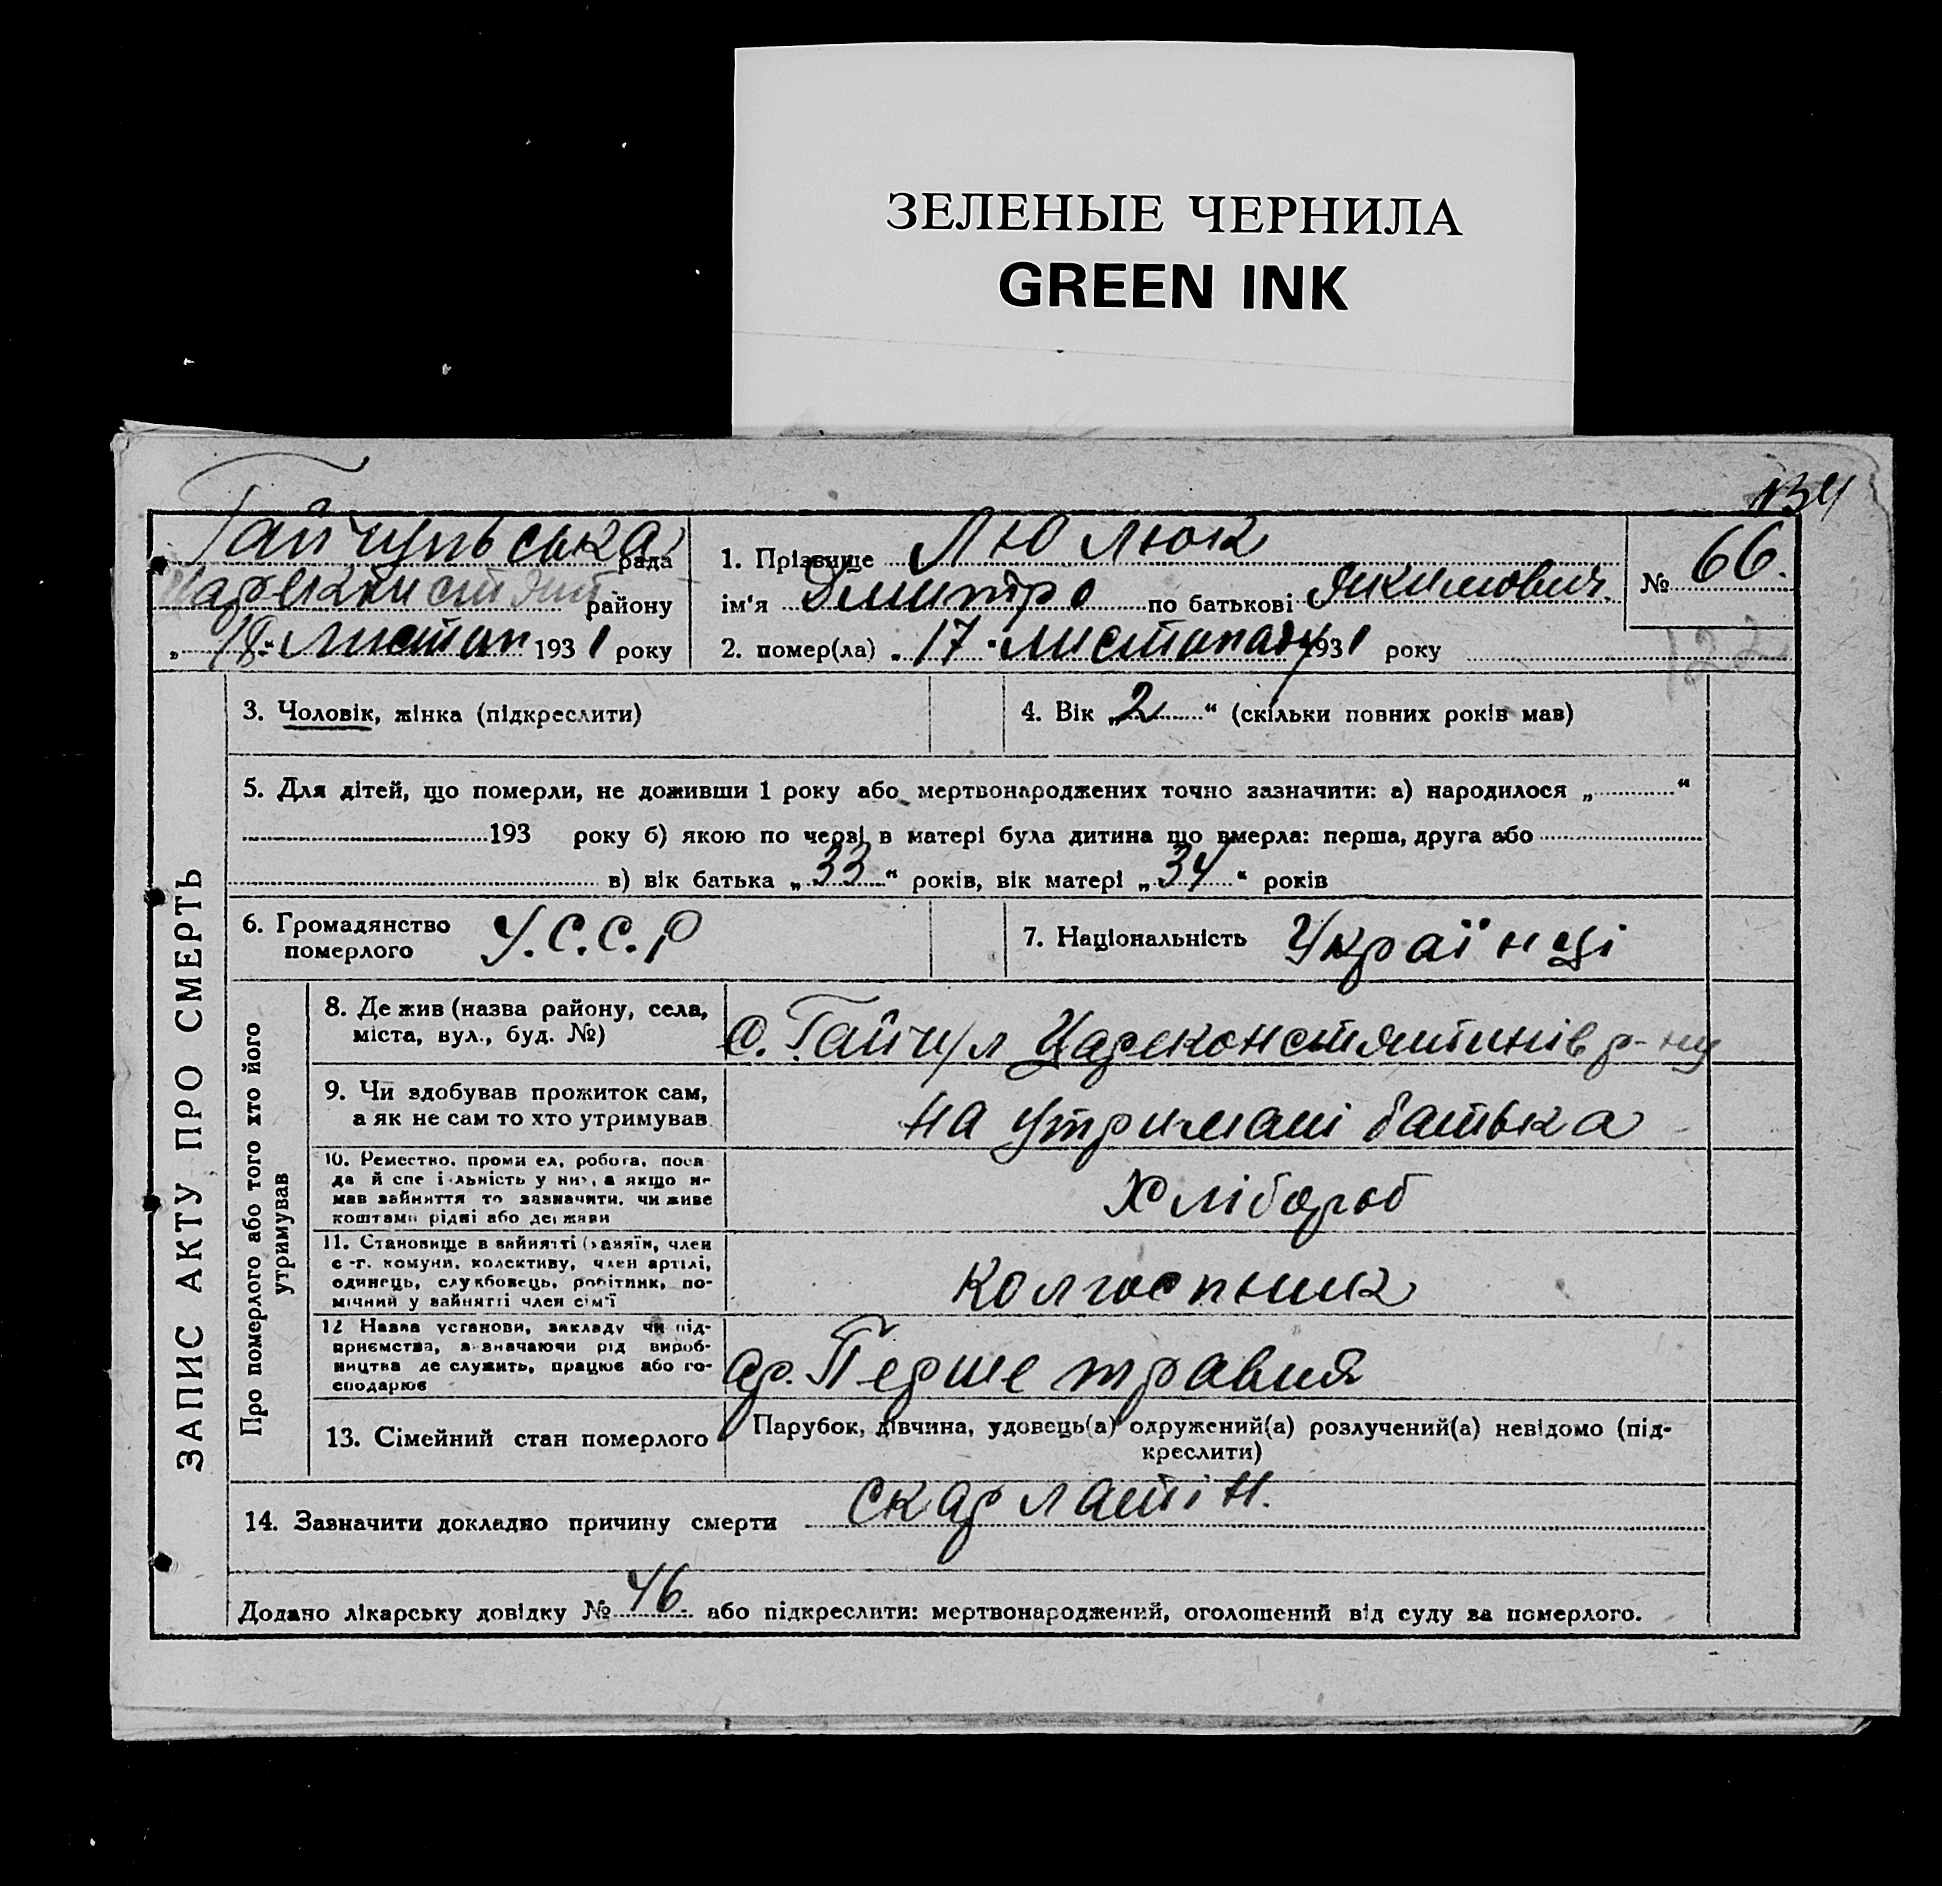 ЗЕЛЕНЫЕ ЧЕРНИЛА
GREEN INK
134
Гайчульська рада
району
„18“ листоп 1931 року
1. Прізвище Люлюк
ім'я Дмитро по батькові Якимович.
№ 66.
2. помер(ла) „17“ листопаду 1931 року
122
ЗАПИС АКТУ ПРО СМЕРТЬ
3. Чоловік, жінка (підкреслити)
4. Вік „2“ (скільки повних років мав)
5. Для дітей, що померли, не доживши 1 року або мертвонароджених точно зазначити: а) народилося „ “
193 року б) якою по черві в матері була дитина що вмерла: перша, друга або
в) вік батька „33“ років, вік матері „34“ років
6. Громадянство
померлого
У.С.С.Р
7. Національність Українці
Про померлого або того хто його
утримував
8. Де жив (назва району, села,
міста, вул., буд. №)
с. Гайчул Цареконстянтинів р-ну
9. Чи здобував прожиток сам,
а як не сам то хто утримував
на утримані батька
10. Реместно, проми ел, робота, поса-
да й спе і льність у ни, а якщо не
мав зайняття то зазначити, чи живе
коштами рідні або держави
Хлібороб
11. Становище в зайнятті (хазяїн, член
с-г. комуни, колективу, член артілі,
одинець, службовець, робітник, по-
мічний у зайнятті член сім'ї
колгоспник
12 Назва установи, закладу чи під-
приємства, зазначаючи рід вироб-
ництва де служить, працює або го-
сподарює
ар. Перше травня
13. Сімейний стан померлого
Парубок, дівчина, удовець(а) одружений(а) розлучений(а) невідомо (під-
креслити)
14. Зазначити докладно причину смерти скарлатін.
Додано лікарську довідку № 46. або підкреслити: мертвонароджений, оголошений від суду за померлого.